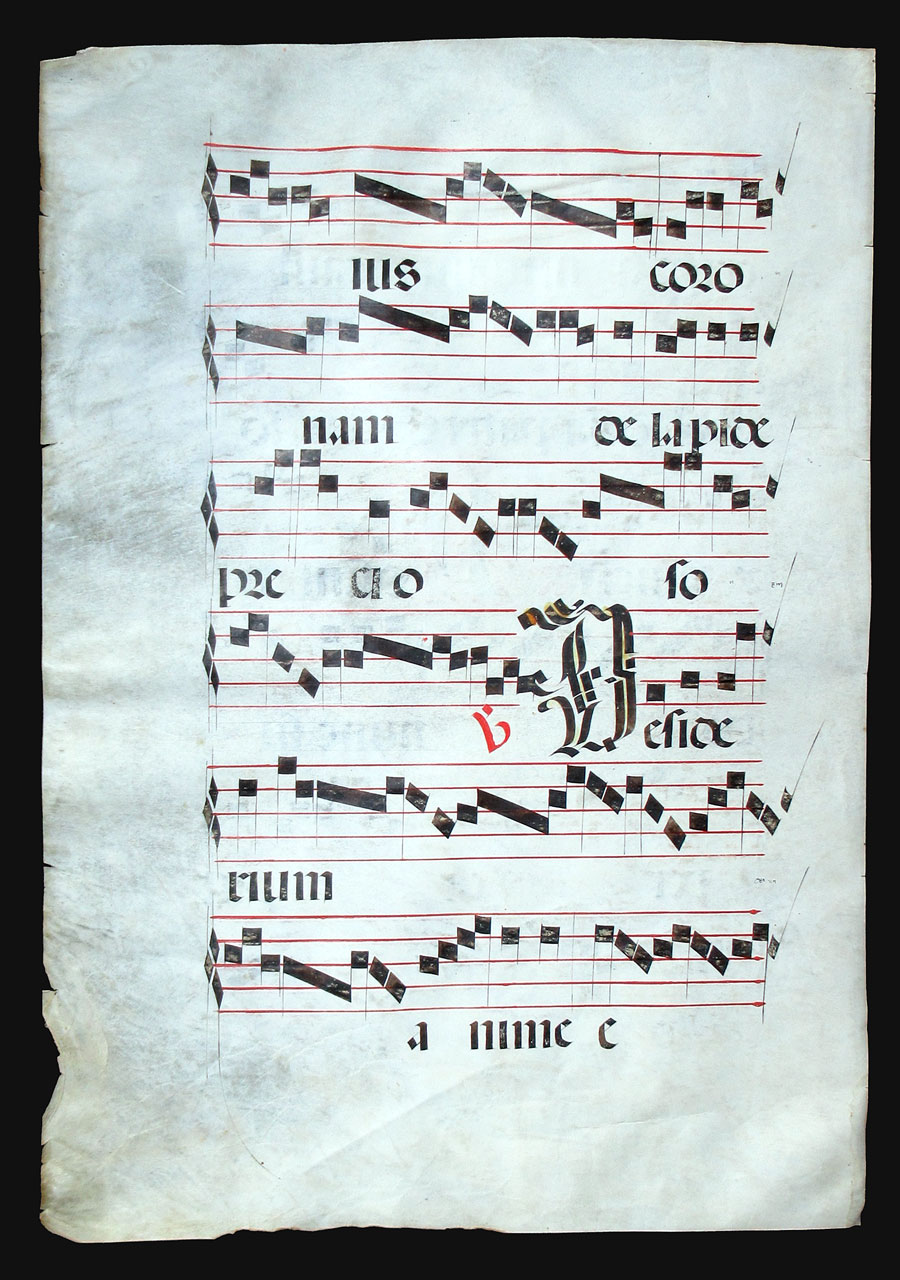 ius coro
nam de lapide
pre ci o so
℣ Deside
rium
a nime e